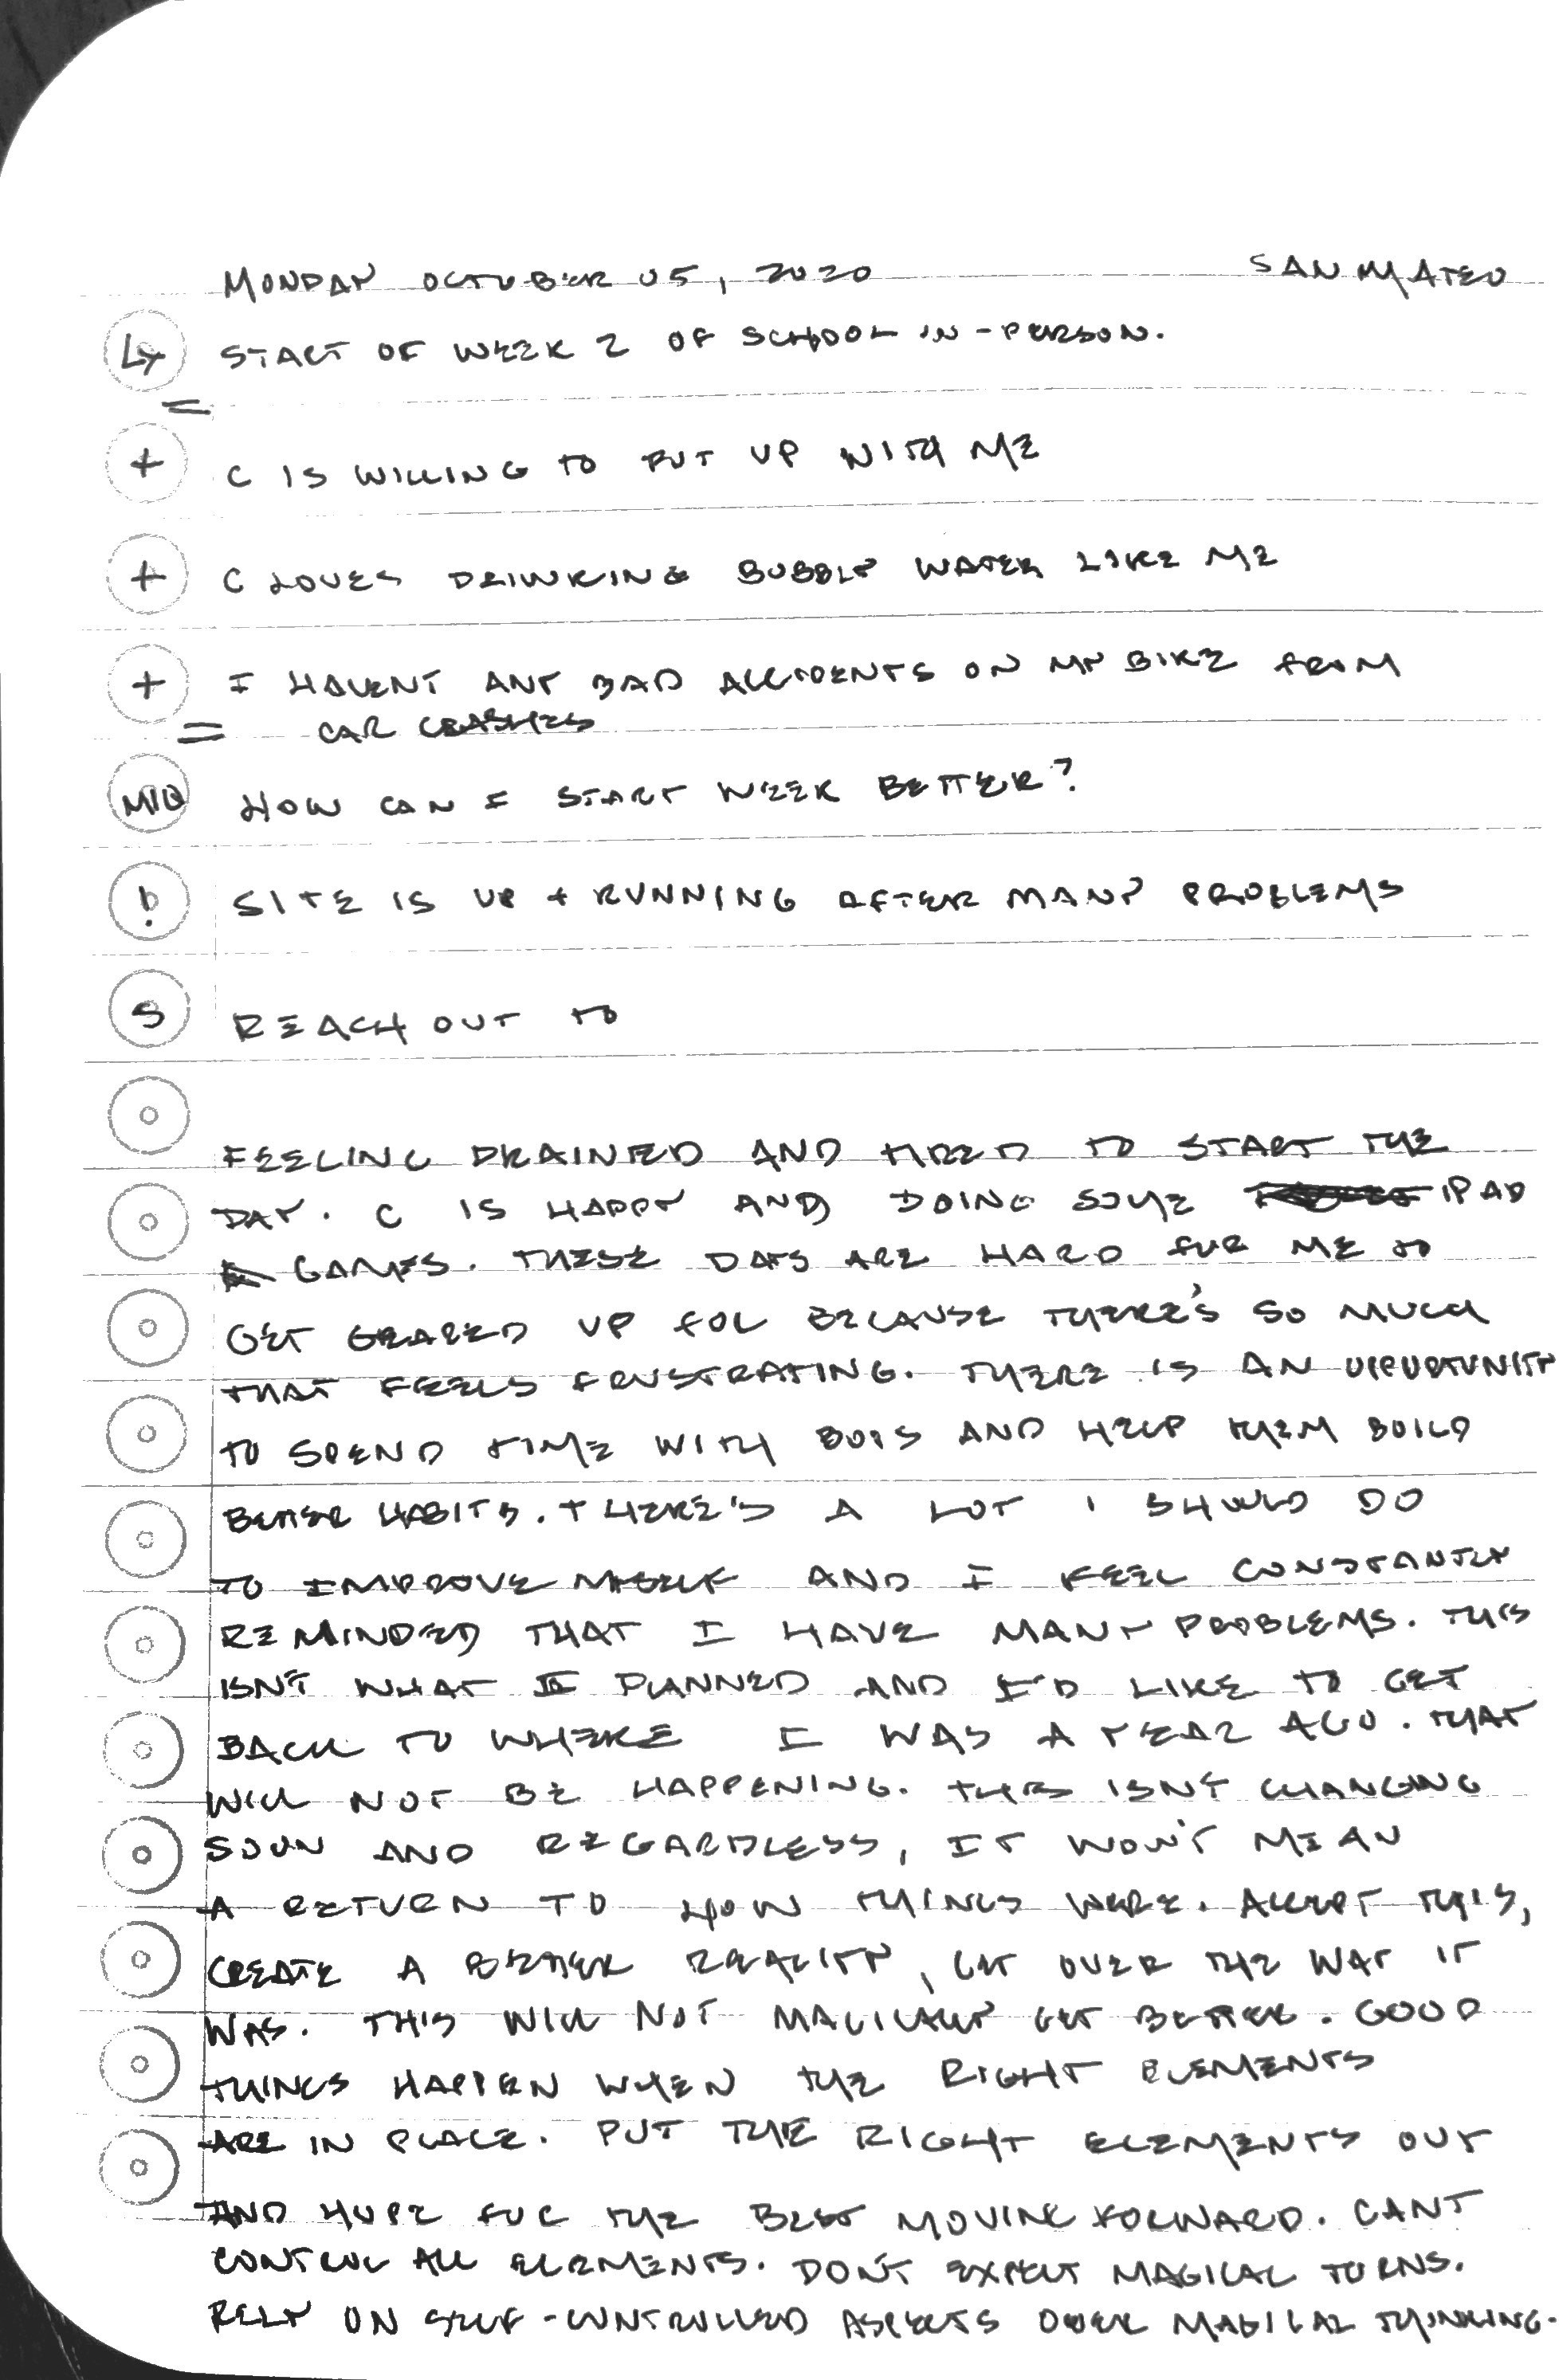 MONDAY OCTOBER 05, 2020 SAN MATEO
LY START OF WEEK 2 OF SCHOOL IN-PERSON.
=
+ C IS WILLING TO PUT UP WITH ME
+ C LOVES DRINKING BUBBLY WATER LIKE ME
+ I HAVENT ANY BAD ACCIDENTS ON MY BIKE FROM
= CAR CRASHES
MIQ HOW CAN I START WEEK BETTER?
! SITE IS UP + RUNNING AFTER MANY PROBLEMS
S REACH OUT TO
FEELING DRAINED AND TIRED TO START THE
DAY. C IS HAPPY AND DOING SOME IPAD
GAMES. THESE DAYS ARE HARD FOR ME TO
GET GEARED UP FOR BECAUSE THERE'S SO MUCH
THAT FEELS FRUSTRATING. THERE IS AN OPPORTUNITY
TO SPEND TIME WITH BOYS AND HELP THEM BUILD
BETTER HABITS. THERE'S A LOT I SHOULD DO
TO IMPROVE MYSELF AND I FEEL CONSTANTLY
REMINDED THAT I HAVE MANY PROBLEMS. THIS
ISN'T WHAT I PLANNED AND I'D LIKE TO GET
BACK TO WHERE I WAS A YEAR AGO. THAT
WILL NOT BE HAPPENING. THIS ISN'T CHANGING
SOON AND REGARDLESS, IT WON'T MEAN
A RETURN TO HOW THINGS WERE. ACCEPT THIS,
CREATE A BETTER REALITY, GET OVER THE WAY IT
WAS. THIS WILL NOT MAGICALLY GET BETTER. GOOD
THINGS HAPPEN WHEN THE RIGHT ELEMENTS
ARE IN PLACE. PUT THE RIGHT ELEMENTS OUT
AND HOPE FOR THE BEST MOVING FORWARD. CANT
CONTROL ALL ELEMENTS. DON'T EXPECT MAGICAL TURNS.
RELY ON SELF-CONTROLLED ASPECTS OVER MAGICAL THINKING.